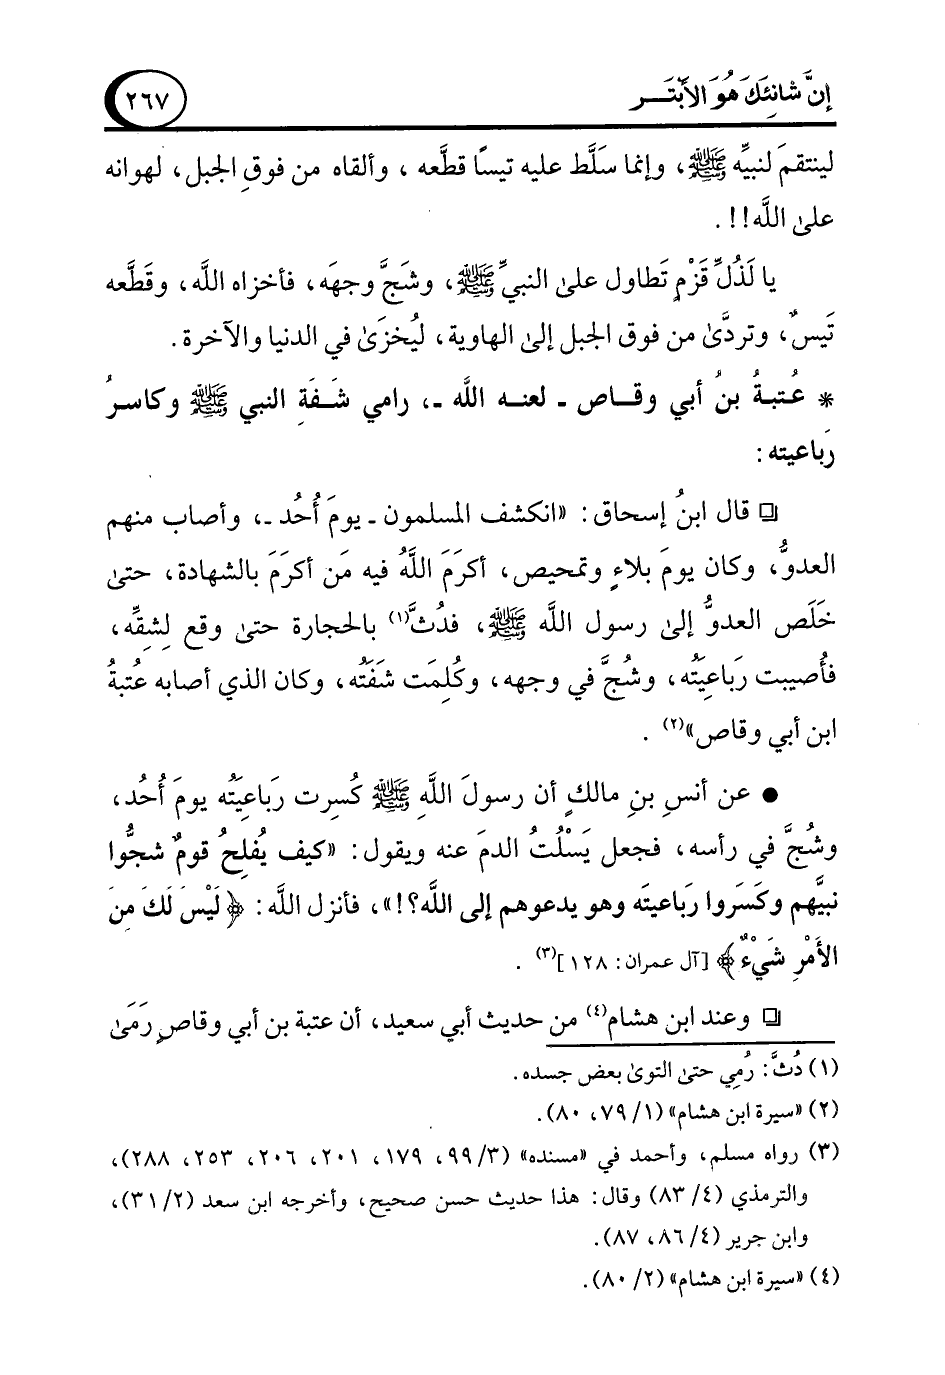 إنَّ شانِئَكَ هُوَ الأَبْتَـــر
٢٦٧
لينتقمَ لنبيِّه ﷺ، وإنما سَلَّط عليه تيسًا قطَّعه ، وألقاه من فوقِ الجبل، لهوانه
على اللَّه!! .
يا لَذُلِّ قَزْمٍ تَطاول على النبيِّ ﷺ، وشَجَّ وجهَه، فأخزاه اللَّه، وقَطَّعه
تَيسٌ، وتردَّى من فوق الجبل إلى الهاوية، ليُخزَى في الدنيا والآخرة .
* عُتبةُ بنُ أبي وقـاص ـ لعنـه اللَّه ـ، رامي شَفَةِ النبي ﷺ وكاسرُ
رَباعيته :
❏ قال ابنُ إسحاق : «انكشف المسلمون ـ يومَ أُحُد ـ، وأصاب منهم
العدوُّ، وكان يومَ بلاءٍ وتمحيص، أكرَمَ اللَّهُ فيه مَن أكرَمَ بالشهادة، حتى
خَلَص العدوُّ إلى رسول اللَّه ﷺ، فدُثَّ(١) بالحجارة حتى وقع لِشِقِّه،
فأُصيبت رَباعِيَتُه، وشُجَّ في وجهه، وكُلِمَت شَفَتُه، وكان الذي أصابه عُتبةُ
ابن أبي وقاص»(٢) .
● عن أنسِ بنِ مالكٍ أن رسولَ اللَّهِ ﷺ كُسِرت رَباعِيَتُه يومَ أُحُد،
وشُجَّ في رأسه، فجعل يَسْلُتُ الدمَ عنه ويقول : «كيف يُفلِحُ قومٌ شجُّوا
نبيَّهم وكَسَروا رَباعيتَه وهو يدعوهم إلى اللَّه؟!»، فأنزل اللَّه : ﴿ لَيْسَ لَكَ مِنَ
الأَمْرِ شَيْءٌ ﴾ [آل عمران : ١٢٨](٣) .
❏ وعند ابن هشام(٤) من حديث أبي سعيد، أن عتبة بن أبي وقاصٍ رَمَى
(١) دُثَّ: رُمِي حتى التوى بعض جسده .
(٢) «سيرة ابن هشام» (١/ ٧٩، ٨٠).
(٣) رواه مسلم، وأحمد في «مسنده» (٣/ ٩٩، ١٧٩، ٢٠١، ٢٠٦، ٢٥٣، ٢٨٨)،
والترمذي (٤/ ٨٣) وقال: هذا حديث حسن صحيح، وأخرجه ابن سعد (٢/ ٣١)،
وابن جرير (٤/ ٨٦، ٨٧).
(٤) «سيرة ابن هشام» (٢/ ٨٠).